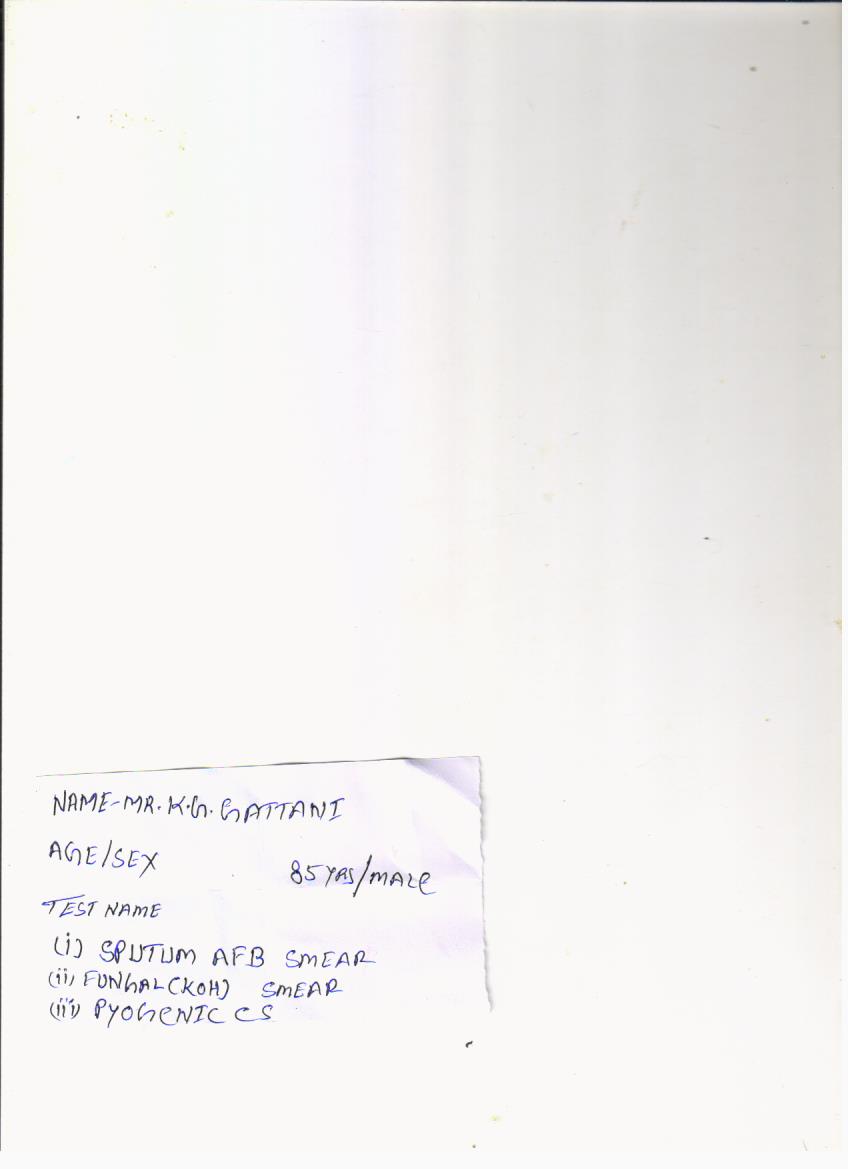 NAME-MR. K.G. GATTANI
AGE/SEX 85 YRS/MALE
TEST NAME
(i) SPUTUM AFB SMEAR
(ii) FUNGAL(KOH) SMEAR
(iii) PYOGENIC CS